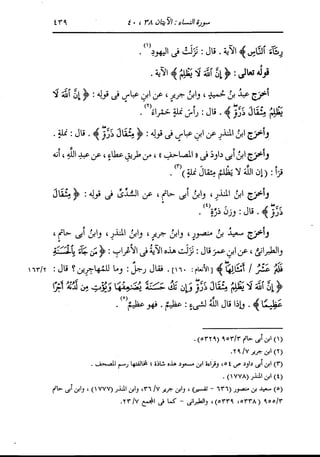 سورة النساء : الآيتان ٣٨ ، ٤٠ ٤٣٩
رِئَآءَ ٱلنَّاسِ ﴾ الآية . قال : نزلت فى اليهود(١) .
قولُه تعالى : ﴿ إِنَّ ٱللَّهَ لَا يَظْلِمُ ﴾ الآية .
أخرَج عبدُ بنُ حُميدٍ ، وابنُ جريرٍ ، عن ابنِ عباسٍ فى قولِه : ﴿ إِنَّ ٱللَّهَ لَا
يَظْلِمُ مِثْقَالَ ذَرَّةٍ ﴾ . قال : رأسَ نملةٍ حمراءَ(٢) .
وأخرَج ابنُ المنذرِ عن ابنِ عباسٍ فى قولِه : ﴿ مِثْقَالَ ذَرَّةٍ ﴾ . قال : نملةٍ .
وأخرَج ابنُ أبى داودَ فى « المصاحفِ » ، من طريقِ عطاءٍ ، عن عبدِ اللهِ ، أنه
قرَأ : ( إن اللهَ لا يظلمُ مثقالَ نملةٍ )(٣) .
وأخرَج ابنُ المنذرِ ، وابنُ أبى حاتمٍ ، عن السُّدىِّ فى قولِه : ﴿ مِثْقَالَ
ذَرَّةٍ ﴾ . قال : وزنَ ذرَّةٍ(٤) .
وأخرَج سعيدُ بنُ منصورٍ ، وابنُ جريرٍ ، وابنُ المنذرِ ، وابنُ أبى حاتمٍ ،
والطبرانىُّ ، عن ابنِ عمرَ قال : نزَلت هذه الآيةُ فى الأعرابِ : ﴿ مَن جَآءَ بِٱلْحَسَنَةِ
فَلَهُۥ عَشْرُ / أَمْثَالِهَا ﴾ [الأنعام : ١٦٠] . فقال رجلٌ : وما للمهاجرين ؟ قال : ١٦٣/٢
﴿ إِنَّ ٱللَّهَ لَا يَظْلِمُ مِثْقَالَ ذَرَّةٍ وَإِن تَكُ حَسَنَةً يُضَٰعِفْهَا وَيُؤْتِ مِن لَّدُنْهُ أَجْرًا
عَظِيمًا ﴾ . وإذا قال اللهُ لشىءٍ : عظيمٌ . فهو عظيمٌ(٥) .
(١) ابن أبى حاتم ٩٥٣/٣ (٥٣٢٩) .
(٢) ابن جرير ٢٩/٧ .
(٣) ابن أبى داود ص ٥٤ ، وقراءة ابن مسعود هذه شاذة ؛ لمخالفتها رسم المصحف .
(٤) ابن المنذر (١٧٧٨) .
(٥) سعيد بن منصور (٦٣٦ - تفسير) ، وابن جرير ٣٦/٧ ، وابن المنذر (١٧٧٧) ، وابن أبى حاتم
٩٥٥/٣ (٥٣٣٨ ، ٥٣٣٩) ، والطبرانى - كما فى المجمع ٢٣/٧ .